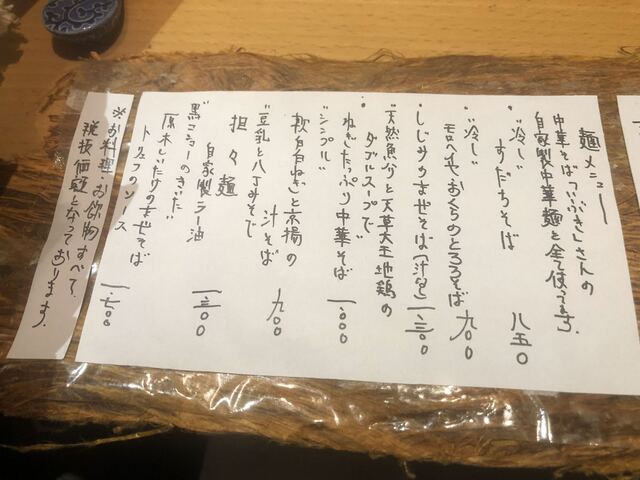 麺メニュー
中華そば つぶきしさんの
自家製中華麺を全て使ってます。
"冷し" すだちそば 八五〇
"冷し"
モロヘイヤ、おくらのとろろそば 九〇〇
・しじみのまぜそば(汁多) 一、三〇〇
・"天然魚介と天草大王地鶏の
ダブルスープで"
ねぎたっぷり中華そば 一、〇〇〇
・"シンプル"
軟白白ねぎと京揚の
汁そば 九〇〇
"豆乳と八丁みそで"
担々麺
自家製ラー油 一、三〇〇
"黒コショーのきいた"
原木しいたけのまぜそば
トリュフのソース 一、七〇〇
※お料理、お飲物すべて、
税抜価段となっております。